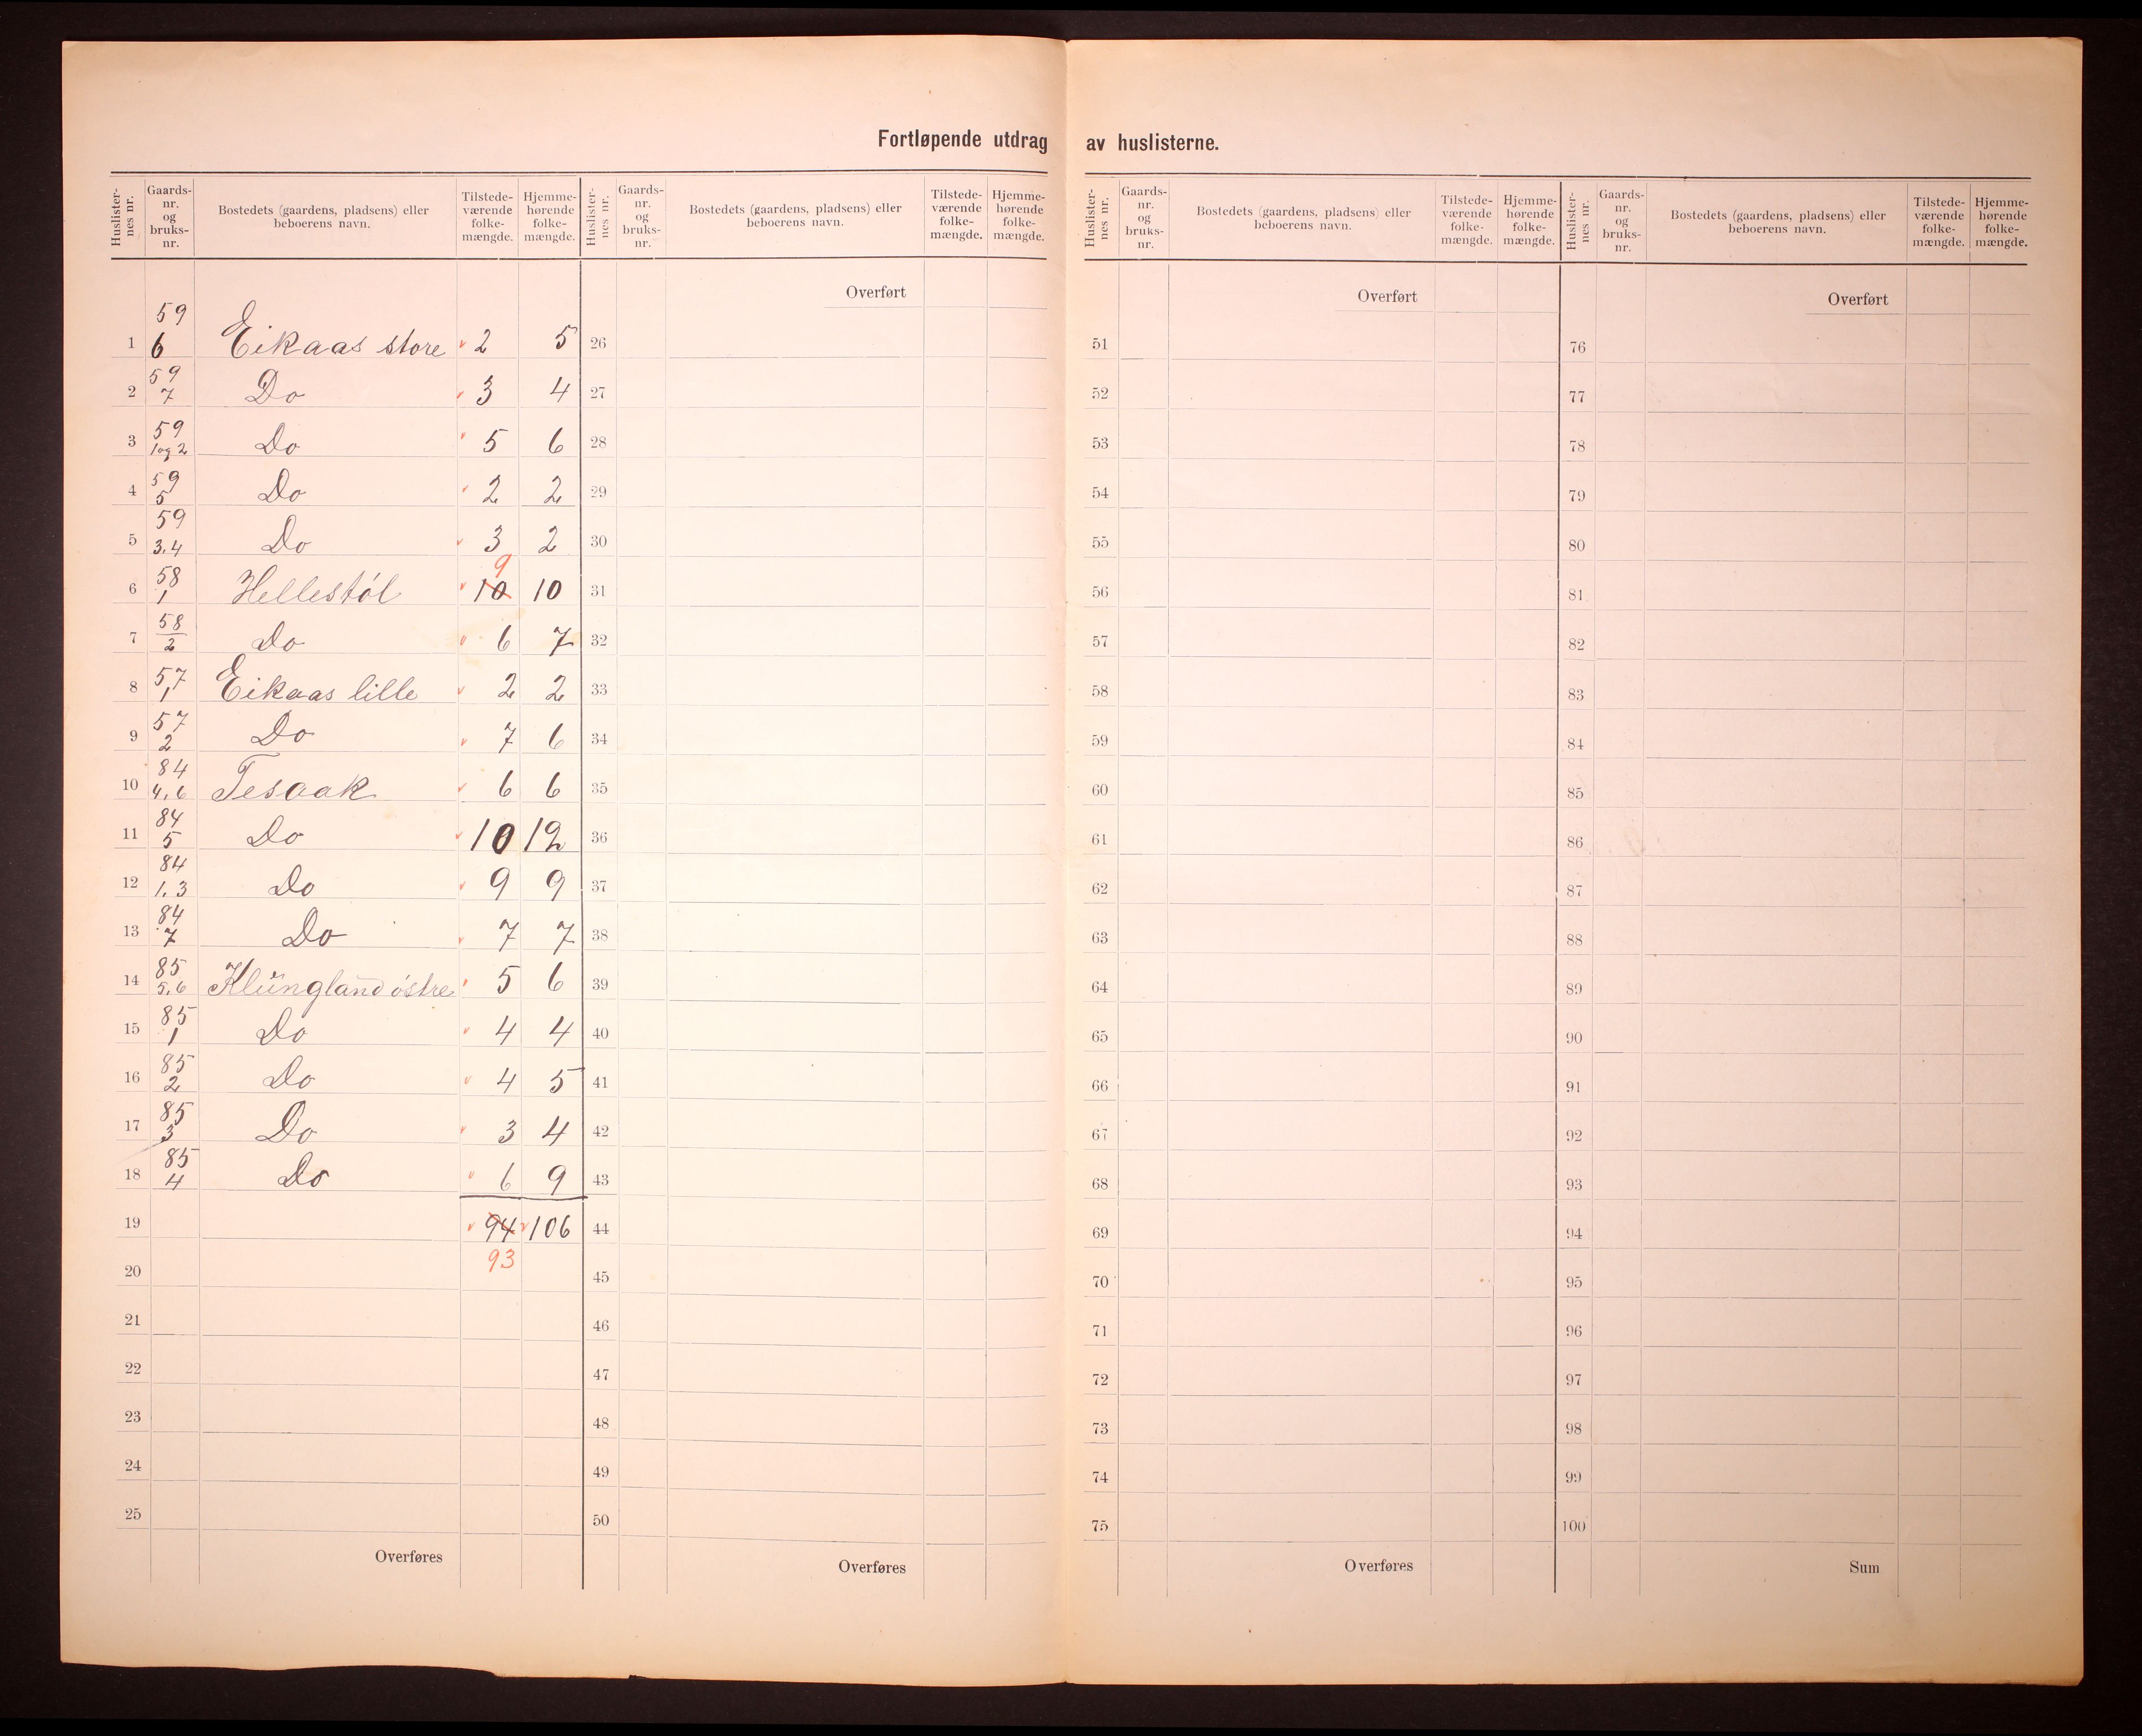 Fortløpende utdrag av huslisterne.
Huslister-
nes nr.
Gaards-
nr.
og
bruks-
nr.
Bostedets (gaardens, pladsens) eller
beboerens navn.
Tilstede-
værende
folke-
mængde.
Hjemme-
hørende
folke-
mængde.
59
1 6 Eikaas store v 2 5
59
2 7 Do v 3 4
59
3 1og 2 Do v 5 6
59
4 5 Do v 2 2
59
5 3.4 Do v 3 2
9
58
6 1 Hellestöl v 10 10
58
7 2 Do v 6 7
57
8 1 Eikaas lille v 2 2
57
9 2 Do v 7 6
84
10 4,6 Tesaak v 6 6
84
11 5 Do v 10 12
84
12 1.3 Do v 9 9
84
13 7 Do v 7 7
85
14 5,6 Klŭngland östre v 5 6
85
15 1 Do v 4 4
85
16 2 Do v 4 5
85
17 3 Do v 3 4
85
18 4 Do v 6 9
19 v 94 v 106
93
20
21
22
23
24
25
Overføres
Huslister-
nes nr.
Gaards-
nr.
og
bruks-
nr.
Bostedets (gaardens, pladsens) eller
beboerens navn.
Tilstede-
værende
folke-
mængde.
Hjemme-
hørende
folke-
mængde.
Overført
26
27
28
29
30
31
32
33
34
35
36
37
38
39
40
41
42
43
44
45
46
47
48
49
50
Overføres
Huslister-
nes nr.
Gaards-
nr.
og
bruks-
nr.
Bostedets (gaardens, pladsens) eller
beboerens navn.
Tilstede-
værende
folke-
mængde.
Hjemme-
hørende
folke-
mængde.
Overført
51
52
53
54
55
56
57
58
59
60
61
62
63
64
65
66
67
68
69
70
71
72
73
74
75
Overføres
Huslister-
nes nr.
Gaards-
nr.
og
bruks-
nr.
Bostedets (gaardens, pladsens) eller
beboerens navn.
Tilstede-
værende
folke-
mængde.
Hjemme-
hørende
folke-
mængde.
Overført
76
77
78
79
80
81
82
83
84
85
86
87
88
89
90
91
92
93
94
95
96
97
98
99
100
Sum